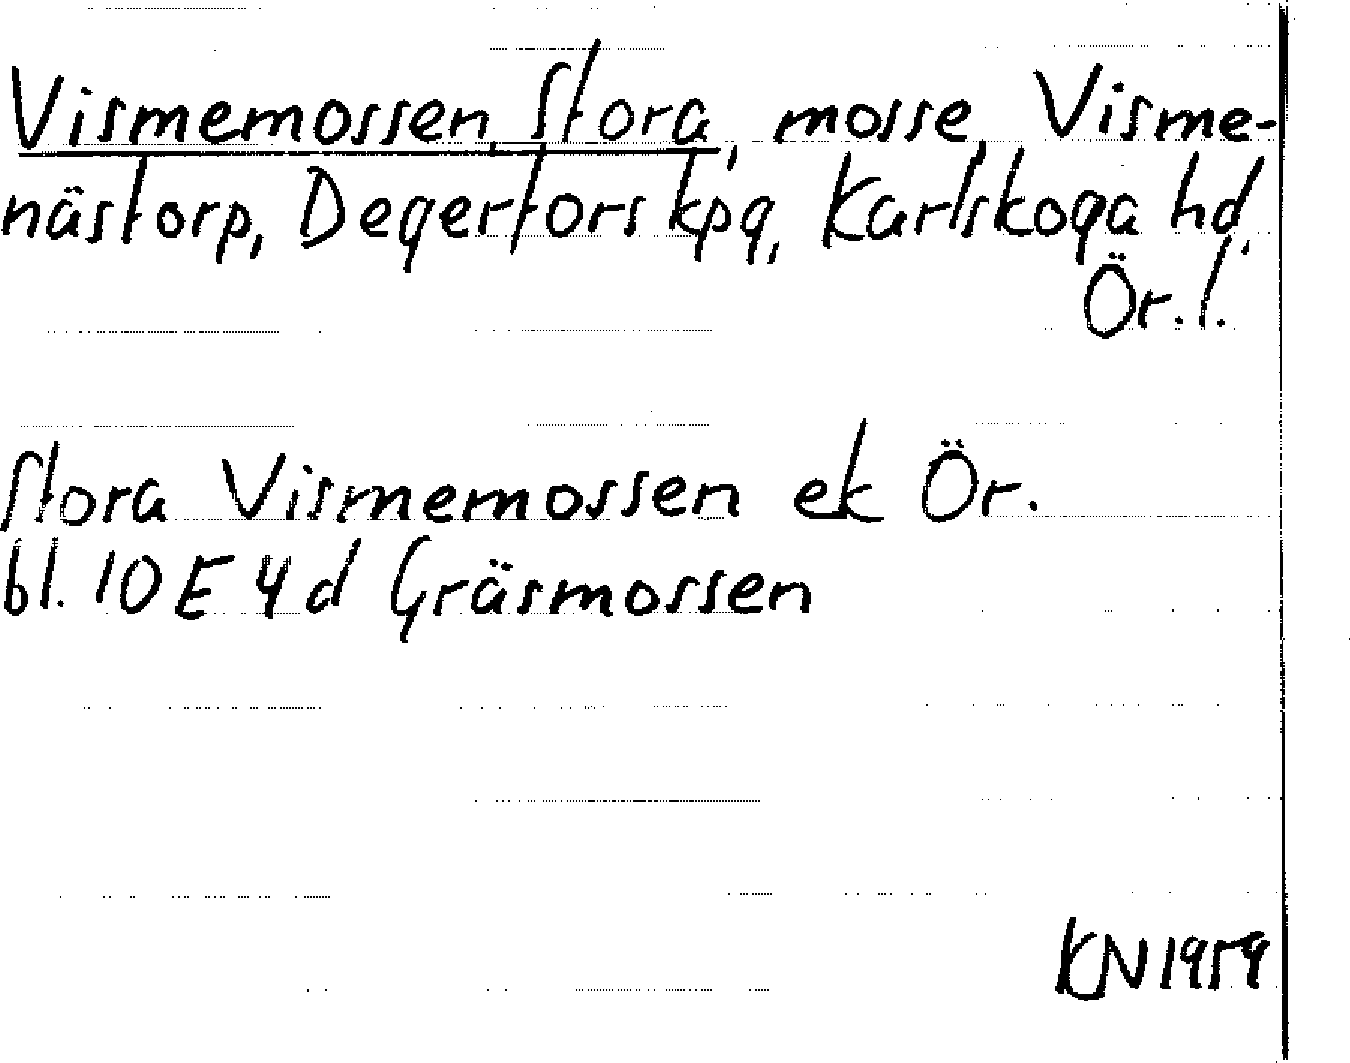 Vismemossen, Stora, mosse, Visme-
nästorp, Degerfors kpg, Karlskoga hd,
Ör.l.
Stora Vismemossen ek Ör.
bl. 10E 4d Gräsmossen
KN 1959